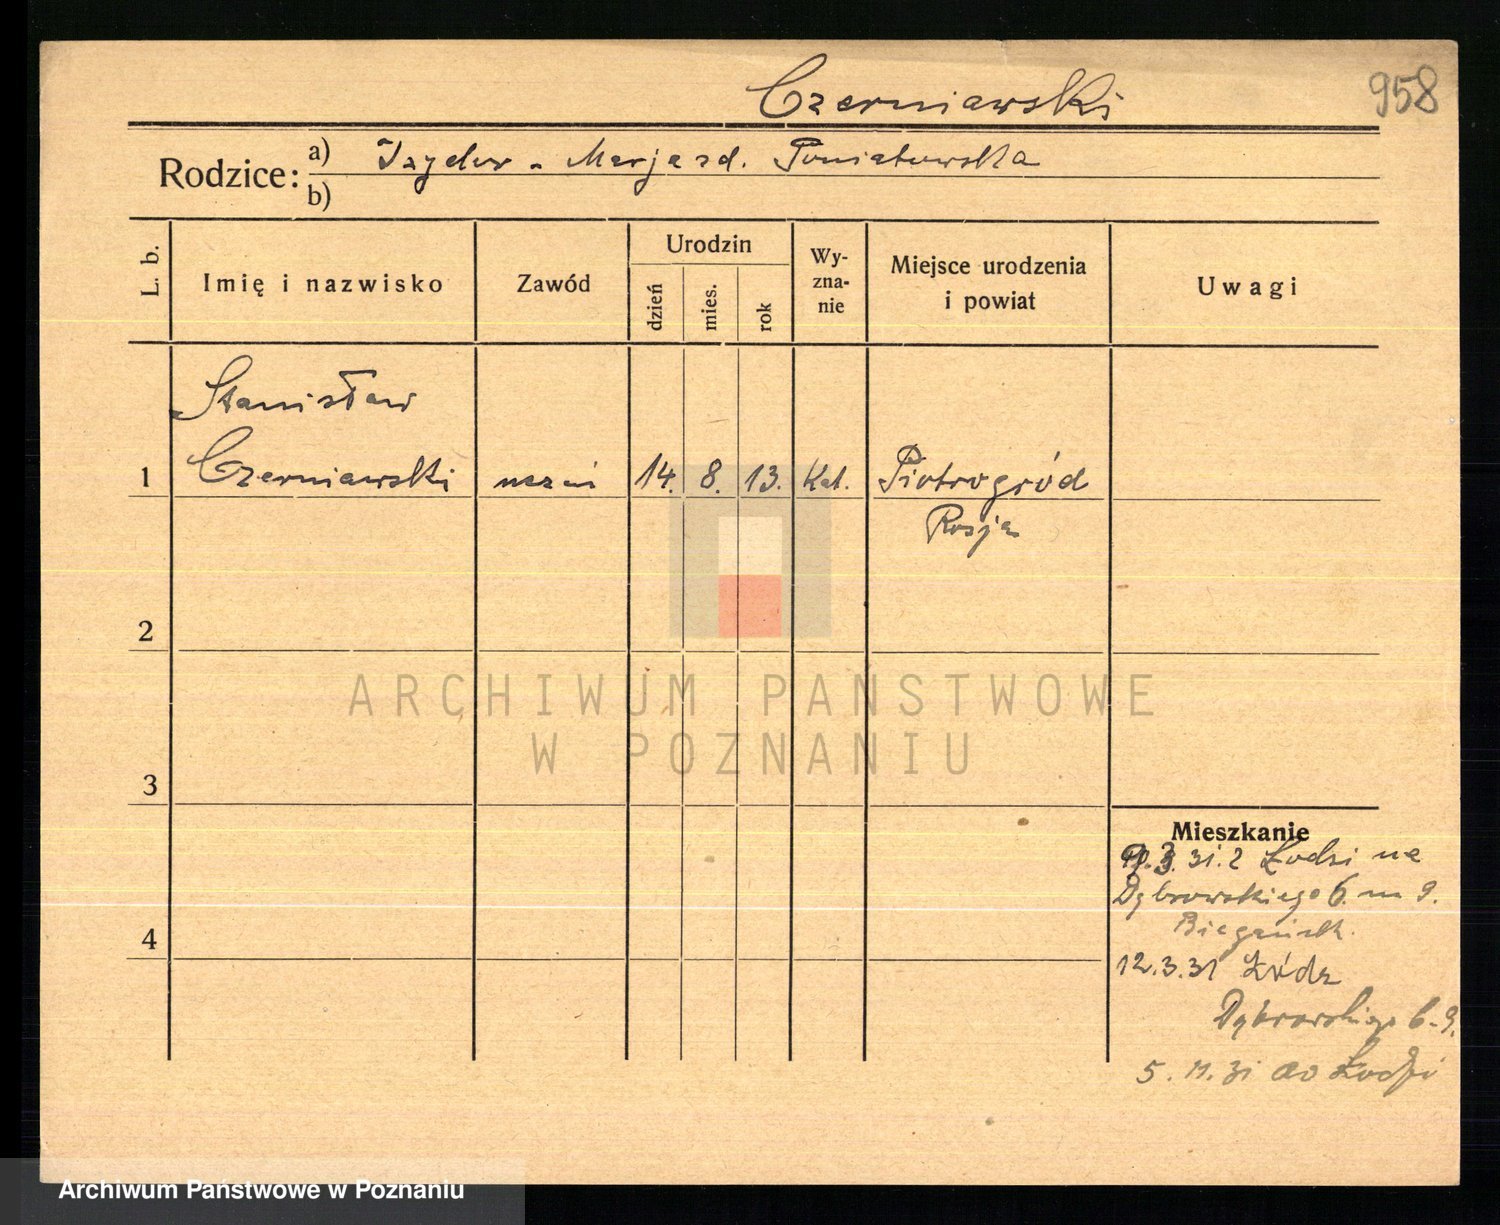 Czerniawski
958
Rodzice: a) Izydor - Marja zd. Poniatowska
b)
L. b.
Imię i nazwisko
Zawód
Urodzin
dzień
mies.
rok
Wy-
zna-
nie
Miejsce urodzenia
i powiat
Uwagi
Stanisław
1 Czerniawski uczeń 14. 8. 13. Kat. Piotrogród
Rosja
2
ARCHIWUM PAŃSTWOWE
W POZNANIU
3
Mieszkanie
31. z Łodzi na
Dąbrowskiego 6. m 9.
4
12.3.31 Łódz
Dąbrowskiego 6-9.
5. 11. 31 do Łodzi
Archiwum Państwowe w Poznaniu